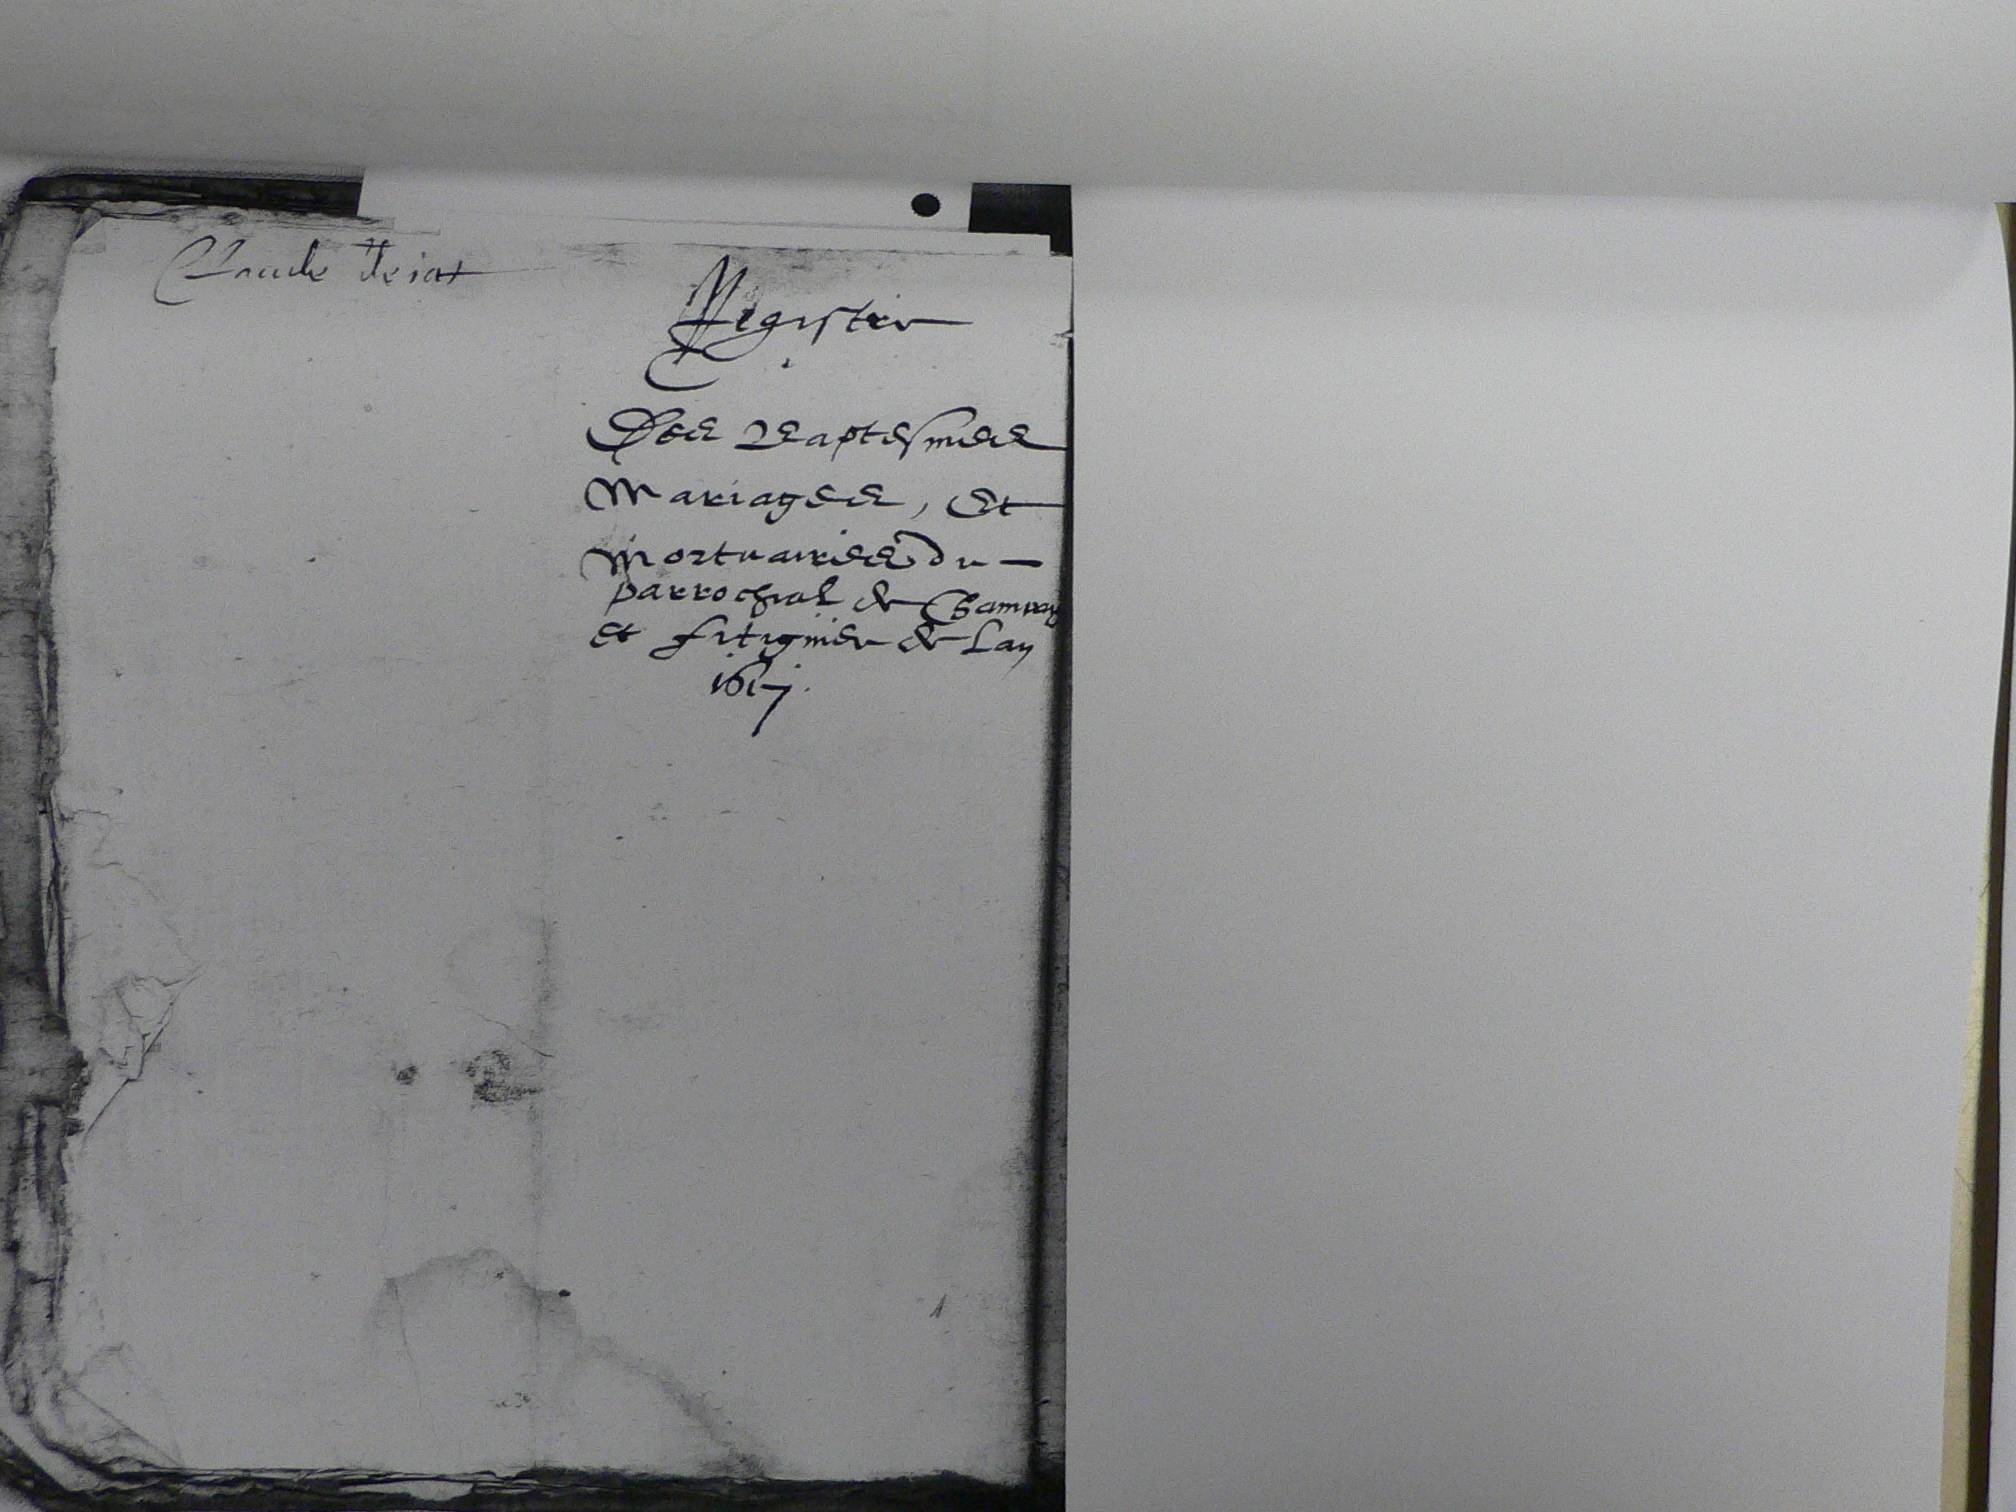 Claude
Registre
Des Baptesmes
Mariages, et
Mortuaires du
parrochial de Chamvay
et fitignieu de Lan
1617.